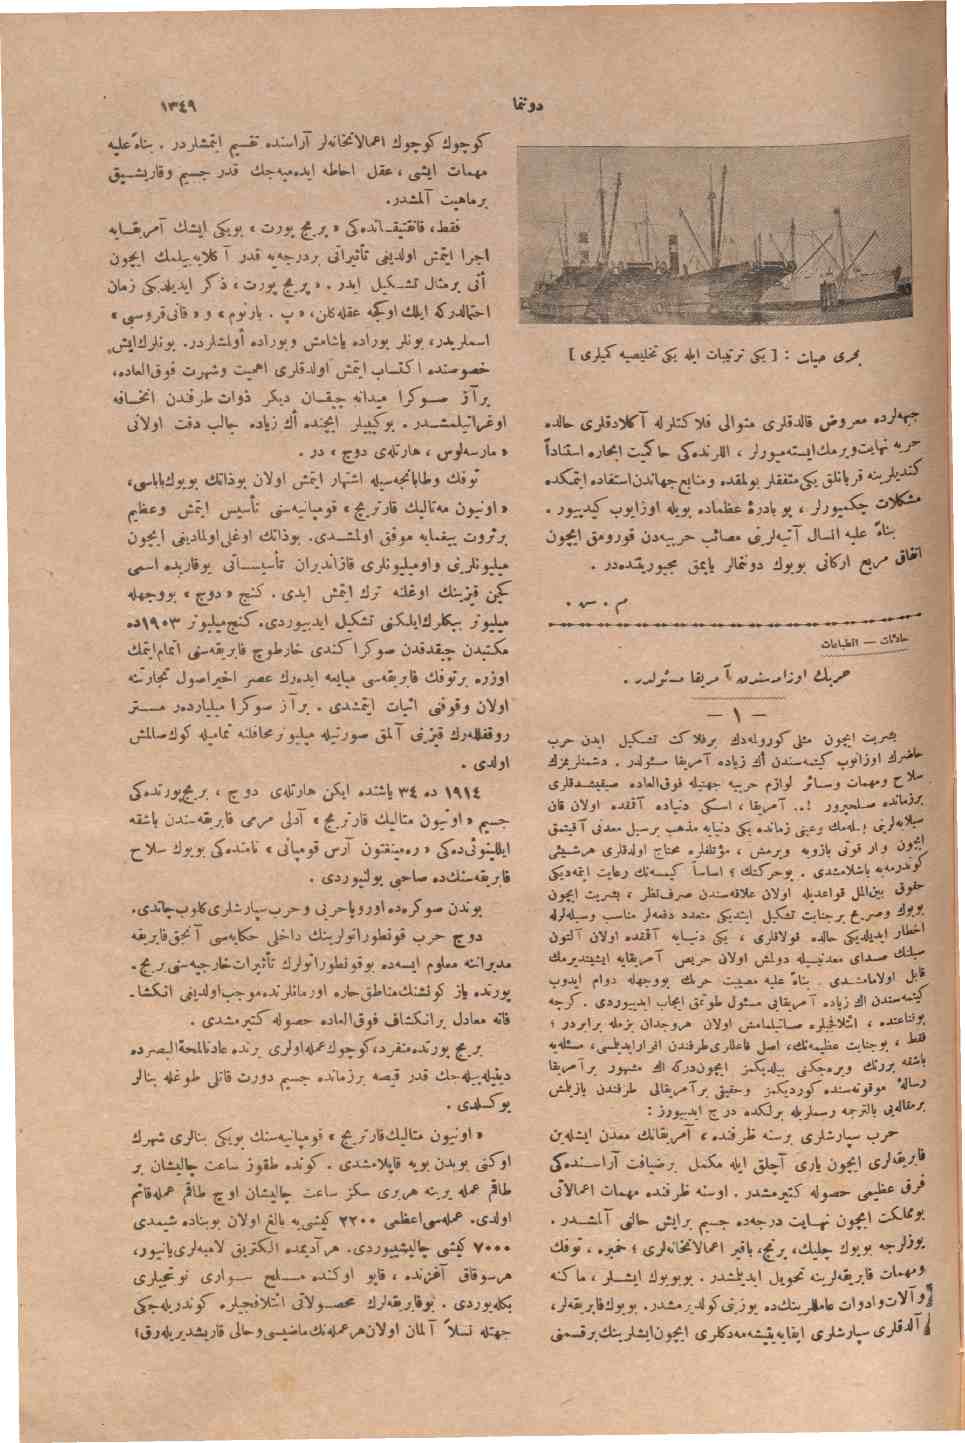 دوننما
١٣٤٩
بحری حیات : [ یکی ترتیبات ایله یکی تخلیصیه کمیلری ]
جبهه‌لرده معروض قالدقلری متوالی فلاکتلرله آکلادقلری حالده
حربه نهایت ویرمك ایسته‌میورلر ، اللرنده‌کی حاکمیت ابحاره استناداً
کندیلرینه قربانلق یکی متفقلر بولمقده ومنابع جهاندن استفاده ایتمکده
مشکلات چکمیورلر ، بو بادرهٔ عظماده بویله اوزایوب کیدییور .
بناءً علیه انسال آتیه‌لرینی مصائب حربیه‌دن قورومق ایچون
اتفاق مربع ارکانی بویوك دونتمالر یاپمق مجبوریتنده‌در .
م . س .
حادثات — انطباعات
حربك اوزامه‌سندن آمریقا مسئولدر .
— ١ —
بشریت ایچون مثلی کورولمه‌دك برفلاکت تشکیل ایدن حرب
حاضرك اوزانوب کیتمه‌سندن أك زیاده آمریقا مسئولدر . دشمنلریمزك
سلاح ومهمات وسائر لوازم حربیه جهتیله فوق‌العاده صیقیشدقلری
برزمانده صلحپرور !.. آمریقا ، اسکی دنیاده آققده اولان قان
سیلابه‌لرینی بسله‌مك وعینی زمانده یکی دنیایه مذهب برسیل معدنی آقیتمق
ایچون وار قوتی بازویه ویرمش ، مؤتلفلره محتاج اولدقلری هرشیئی
کوندرمه‌یه باشلامشدی . بوحرکتك ؛ اساساً کیمسه‌نك رعایت ایتمه‌دیکی
حقوق بین‌الملل قواعدیله اولان علاقه‌سندن صرف‌نظر ، بشریت ایچون
بویوك وصریح برجنایت تشکیل ایتدیکی متعدد دفعه‌لر مناسب وسیله‌لرله
اخطار ایدیلدیکی حالده قولاقلری ، یکی دنیایه آقمقده اولان آلتون
سیلنك صدای معدنیسیله دولمش اولان حریص آمریقایه ایشیتدیرمك
قابل اولامامشدی . بناءً علیه مصیبت حربك بووجهله دوام ایدوب
کیتمه‌سندن اك زیاده آمریقایی مسئول طوتمق ایجاب ایدییوردی . کرچه
بوقناعتده ، ائتلافجیلره صاتیلمامش اولان هروجدان بزمله برابردر ؛
فقط ، بوجنایت عظیمه‌نك، اصل فاعللری طرفندن اقرار ایدیلمسی، مسئله‌یه
باشقه بررنك ویره‌جکنی بیلدیکمز ایچوندرکه اك مشهور برآمریقا
رسالهٔ موقوته‌سنده کوردیکمز وحقیقی برآمریقالی طرفندن یازیلمش
برمقاله‌یی بالترجمه رسملریله برلکده درج ایدییورز :
حرب سپارشلری برسنه ظرفنده ، آمریقانك معدن ایشله‌ین
فابریقه‌لری ایچون یاری آچلق ایله مکمل برضیافت آراسنده‌کی
فرق عظیمی حصوله کتیرمشدر . اوسنه ظرفنده مهمات اعمالاتی
بومملکت ایچون نهایت درجه‌ده جسیم برایش حالنی آلمشدر .
یوزلرجه بویوك چلیك، پرنج، باقیر اعمالاتخانه‌لری ؛ خمپره ، توفك
ومهمات فابریقه‌لرینه تحویل ایدیلمشدر . بوبویوك ایشلر ، ماکنه
وآلات وادوات عاملرینك‌ده یوزینی کولدیرمشدر. بویوك فابریقه‌لر،
آلدقلری سپارشلری ایفایه یتیشه‌مه‌دکلری ایچون ایشلرینك برقسمنی
کوچوك کوچوك اعمالاتخانه‌لر آراسنده تقسیم ایتمشلردر . بناءً علیه
مهمات ایشی ، عقل احاطه ایده‌میه‌جك قدر جسیم وقاریشیق
برماهیت آلمشدر.
فقط، قانه‌تیقانده‌کی « بریج پورت » بویکی ایشك آمریقایه
اجرا ایتمش اولدیغی تأثیراتی بردرجه‌یه قدر آکلایه‌بیلمك ایچون
أیی برمثال تشکیل ایدر . « بریج پورت » ذکر ایدیلدیکی زمان
احتمالدرکه ایلك اوکجه عقله کلن، « پ . بارنوم » و « فانی قروسبی »
اسملریدر، بونلر بوراده یاشامش وبوراده أولمشلردر. بونلرك ایش
خصوصنده اکتساب ایتمش اولدقلری اهمیت وشهرت فوق‌العاده،
برآز صوکرا میدانه چیقان دیکر ذوات طرفندن انخسافه
اوغراتیلمشدر . بوکیبیلر ایچنده أك زیاده جالب دقت اولانی
« مارسه‌لوس ، هارتله‌ی دوج » در .
توفك وطابانجه‌سیله اشتهار ایتمش اولان بوذاتك بویوك‌باباسی،
« اونیون مه‌تالیك قارتریج » قومپانیه‌سنی تأسیس ایتمش وعظیم
برثروت ییغمایه موفق اولمشدی. بوذاتك اوغلی اولمادیغی ایچون
میلیونلرینی واومیلیونلری قازاندیران تأسیساتی یوقاریده اسمی
کچن قیزینك اوغلنه ترك ایتمش ایدی . کنج « دوج » بووجهله
میلیونر بیکلرك ایلکنی تشکیل ایدییوردی. کنج میلیونر ١٩٠٣ ده
مکتبدن چیقدقدن صوکرا کندی خارطوچ فابریقه‌سنی اتمام ایتمك
اوزره برتوفك فابریقه‌سی مبایعه ایده‌رك عصر اخیر اصول تجارتنه
اولان وقوفنی اثبات ایتمشدی . برآز صوکرا میلیاردر مستر
روقفللرك قیزنی آلمق صورتیله میلیونر محافلنه تمامیله کوك صالمش
اولدی .
١٩١٤ ده ٣٤ یاشنده ایکن هارتله‌ی دوج ، بریج‌پورتده‌کی
جسیم « اونیون متالیك قارتریج » آدلی مرمی فابریقه‌سندن باشقه
ایللینوئی‌ده‌کی « ره‌مینغتون آرس قومپانی » نامنده‌کی بویوك سلاح
فابریقه‌سنك‌ده صاحبی بولنیوردی .
بوندن صوکره‌ده اوروپا حربی و حرب سپارشلری کلوب چاتدی.
دوج حرب قونطوراتولرینك داخلی حکایه‌سی آنجق فابریقه
مدیرانته معلوم ایسه‌ده بوقونطوراتولرك تأثیرات خارجیه‌سنی بریج.
پورنده یاز کونشنك مناطق حاره اورمانلرنده موجب اولدیغی انکشا.
فاته معادل برانکشاف فوق‌العاده حصوله کتیرمشدی .
بریج پورتده منفرد، کوچوك عمله اولری یرنده عادتا لمحةالبصرده
دینیله‌بیله‌جك قدر قیصه برزمانده جسیم دورت قاتلی طوغله بنالر
یوکسلدی .
« اونیون متالیك قارتریج » قومپانیه‌سنك بویکی بنالری شهرك
اوکنی بویدن بویه قاپلامشدی . کونده طقوز ساعت چالیشان بر
طاقم عمله یرینه هربری سکز ساعت چالیشان اوچ طاقم عمله قائم
اولدی. عمله‌سی اعظمی ٢٢٠٠ کیشی‌یه بالغ اولان بوبناده شیمدی
٧٠٠٠ کیشی چالیشیوردی . هر آدیمده الکتریق لامبه‌لری یانیور،
هرسوقاق آغزنده ، قاپو اوکنده مسلح سواری نوبتجیلری
بکله‌یوردی . بوفابریقه‌لرك محصولاتی ائتلافجیلره کوندریله‌جکی
جهتله نسلاً آلمان اولان هرعمله‌نك ماضیسی وحالی قاریشدیریله‌رق؛